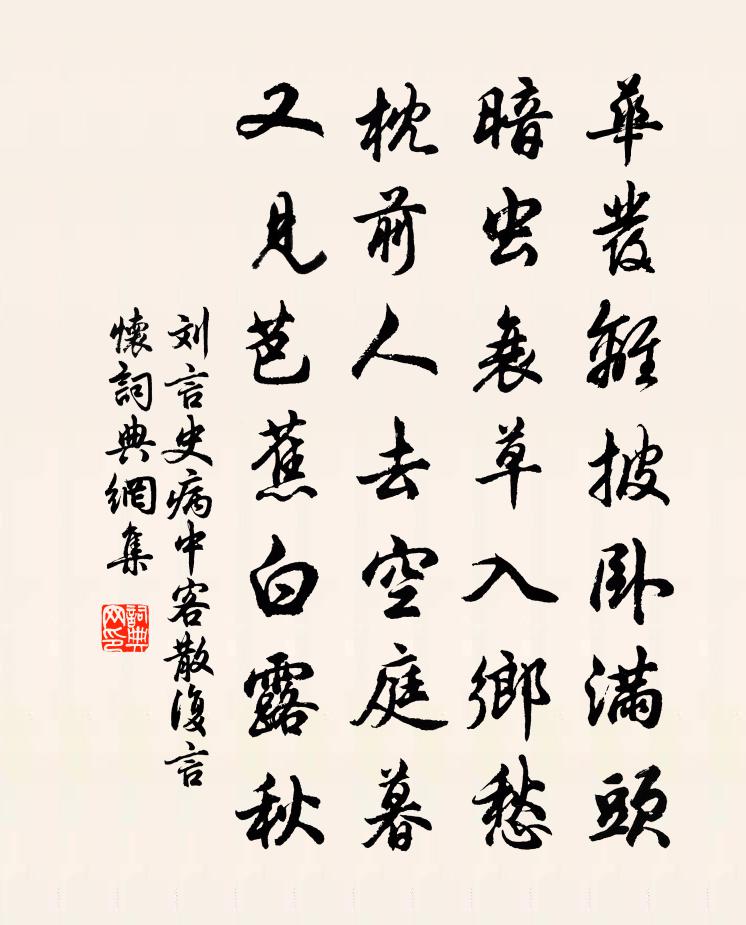 華發離披卧滿頭
暗虫衰草入鄉愁
枕前人去空庭暮
又見芭蕉白露秋
刘言史病中客散復言
懷詞典網集
詞典網印